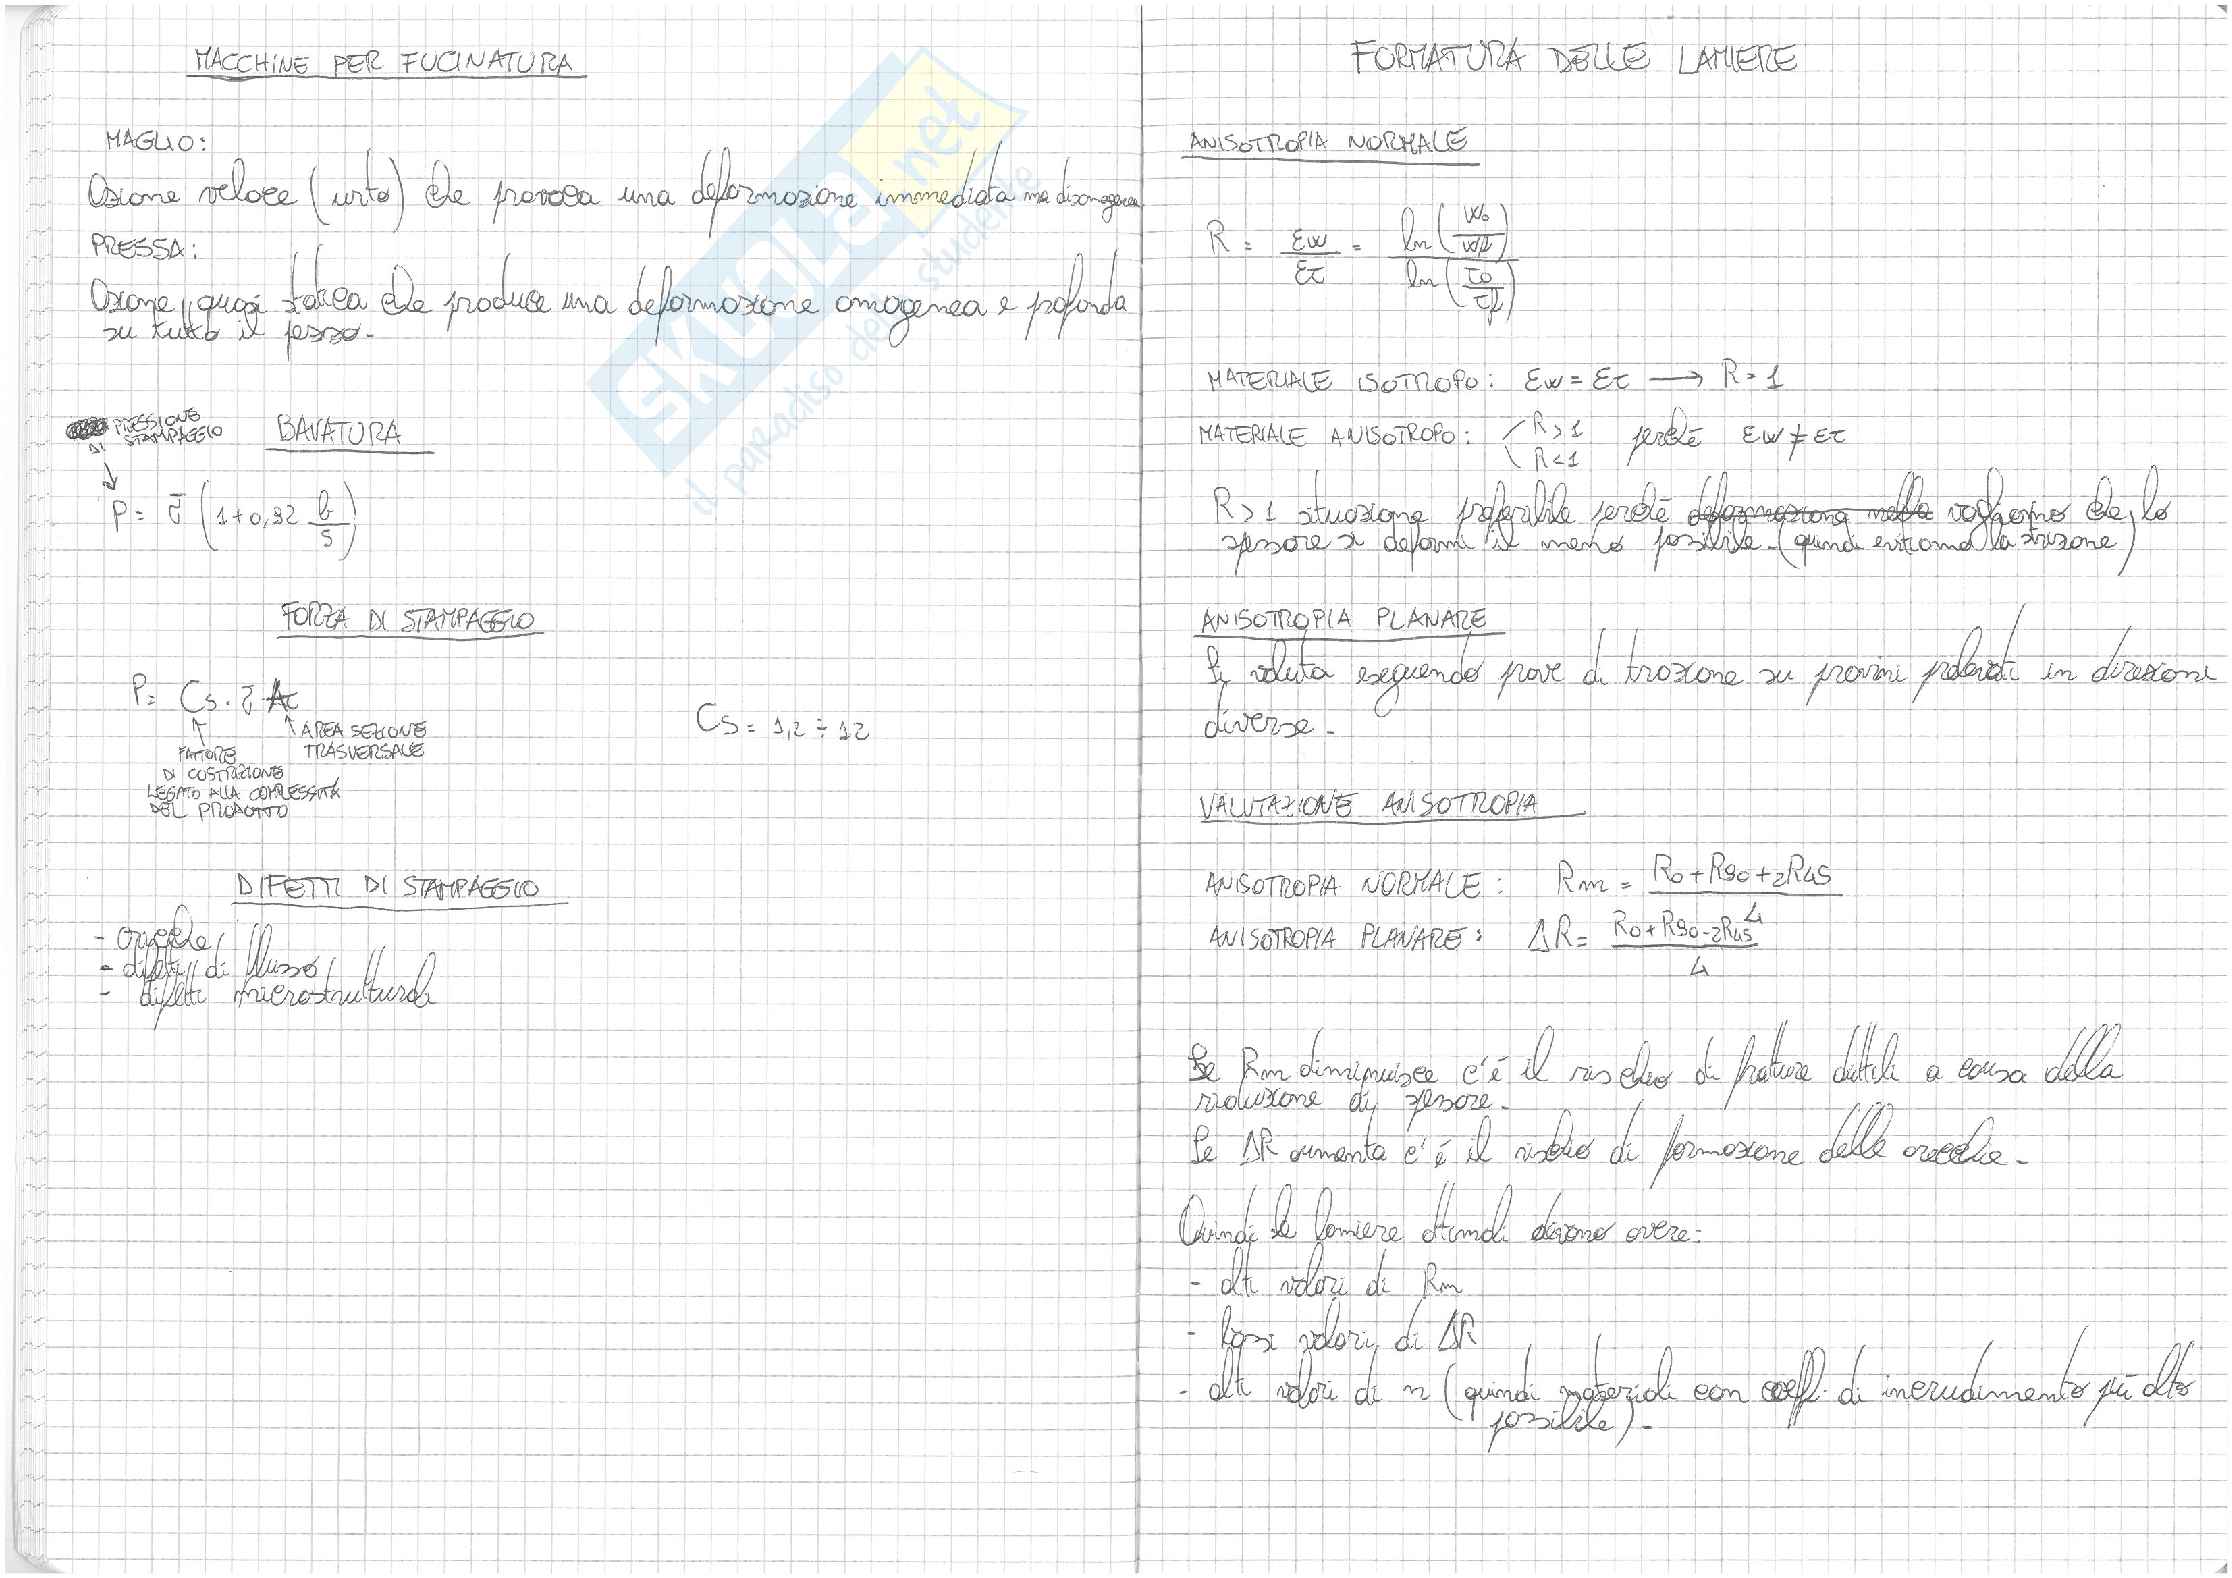 MACCHINE PER FUCINATURA
MAGLIO:
Azione veloce (urto) che provoca una deformazione immediata ma disomogenea
PRESSA:
Azione quasi statica che produce una deformazione omogenea e profonda
su tutto il pezzo.
PRESSIONE
DI STAMPAGGIO
BAVATURA
P = (1+0,32 b/s)
FORZA DI STAMPAGGIO
P = Cs · Ac
FATTORE
DI COSTRIZIONE
LEGATO ALLA COMPLESSITÀ
DEL PRODOTTO
AREA SEZIONE
TRASVERSALE
Cs = 1,2 ÷ 12
DIFETTI DI STAMPAGGIO
- orecchie
- difetti di flusso
- difetti microstrutturali
FORMATURA DELLE LAMIERE
ANISOTROPIA NORMALE
R = εw/ετ = ln(w0/wf)/ln(τ0/τf)
MATERIALE ISOTROPO: εw = ετ → R = 1
MATERIALE ANISOTROPO: R>1 R<1 perchè εw ≠ ετ
R>1 situazione preferibile perchè vogliamo che lo
spessore si deformi il meno possibile. (quindi evitiamo la strizione)
ANISOTROPIA PLANARE
Si valuta eseguendo prove di trazione su provini prelevati in direzioni
diverse.
VALUTAZIONE ANISOTROPIA
ANISOTROPIA NORMALE: Rm = R0+R90+2R45 / 4
ANISOTROPIA PLANARE: ΔR = R0+R90-2R45 / 4
Se Rm diminuisce c'è il rischio di fratture duttili a causa della
riduzione di spessore.
Se ΔR aumenta c'è il rischio di formazione delle orecchie.
Quindi le lamiere ottimali devono avere:
- alti valori di Rm
- bassi valori di ΔR
- alti valori di n (quindi materiali con coeff. di incrudimento più alto
possibile).
SKUOLA.net
il paradiso dello studente